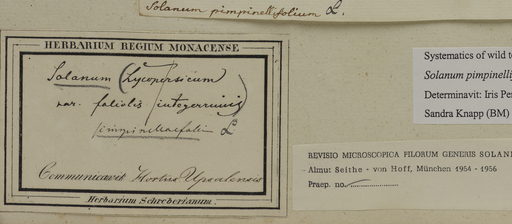 Solanum pimpinellifolium L.
HERBARIUM REGIUM MONACENSE
Solanum (Lycopersicum
var. foliolis integerrimis)
pimpinellaefoli L
Communicavit Hortus Upsalensis
Herbarium Schreberianum.
Systematics of wild to
Solanum pimpinellif
Determinavit: Iris Per
Sandra Knapp (BM)
REVISIO MICROSCOPICA PILORUM GENERIS SOLANI
Almut Seithe - von Hoff, München 1954 - 1956
Praep. no.